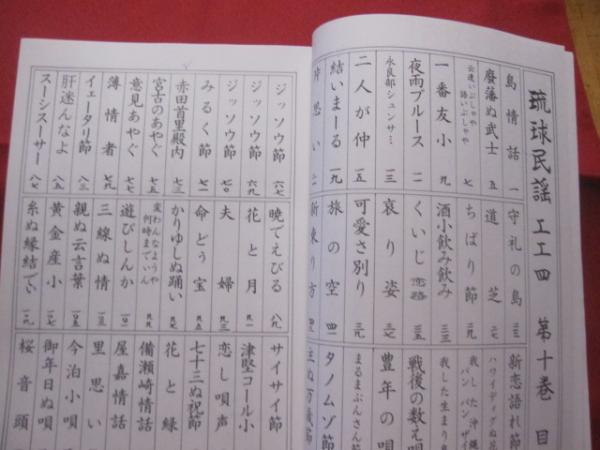 琉球民謡 工工四 第十巻 目
島情話 一
廃藩ぬ武士 五
一番友小 九
夜雨ブルース 一一
永良部シュンサミ 一三
二人が仲 一五
結いまーる 一九
守礼の島
道芝 二七
ちばり節
酒小飲み飲み
くいじ 恋路 三五
哀り姿 三七
可愛さ別り 三九
旅の空 四一
新恋語れ節
戦後の数え唄
豊年の唄
まるまぶんさん節
タノムゾ節
ジッソウ節 六七
ジッソウ節 六九
みるく節 七〇
赤田首里殿内 七一
宮古のあやぐ 七五
意見あやぐ 七七
薄情者 七九
イェータリ節 八一
肝迷んなよ 八五
スーシスーサー 八七
暁でえびる 八九
花と月 九一
夫婦 九三
命どぅ宝 九五
かりゆしぬ踊い
変わんなようや
何時までぃん 九九
遊びしんか 一〇一
三線ぬ情 一〇三
親ぬ云言葉 一〇五
黄金産小
糸ぬ縁結でぃ
サイサイ節
津堅コール小
恋し唄声
七十三ぬ祝節
花と縁
備瀬崎情話
屋嘉情話
里思い
今泊小唄
御年日ぬ唄
桜音頭